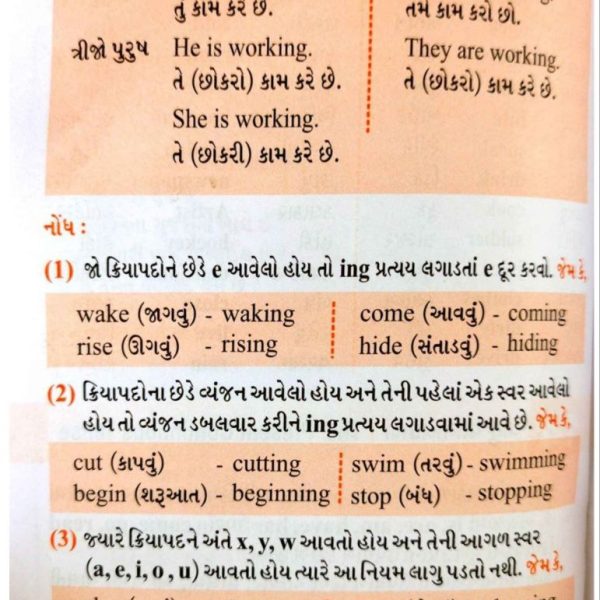 તું કામ કરે છે.
તમે કામ કરો છો.
ત્રીજો પુરુષ He is working.
They are working.
તે (છોકરો) કામ કરે છે.
તે (છોકરો) કામ કરે છે.
She is working.
તે (છોકરી) કામ કરે છે.
નોંધ :
(1) જો ક્રિયાપદોને છેડે e આવેલો હોય તો ing પ્રત્યય લગાડતાં e દૂર કરવો. જેમ કે,
wake (જાગવું) - waking come (આવવું) - coming
rise (ઊગવું) - rising hide (સંતાડવું) - hiding
(2) ક્રિયાપદોના છેડે વ્યંજન આવેલો હોય અને તેની પહેલાં એક સ્વર આવેલો
હોય તો વ્યંજન ડબલવાર કરીને ing પ્રત્યય લગાડવામાં આવે છે. જેમ કે,
cut (કાપવું) - cutting swim (તરવું) - swimming
begin (શરૂઆત) - beginning stop (બંધ) - stopping
(3) જ્યારે ક્રિયાપદને અંતે x, y, w આવતો હોય અને તેની આગળ સ્વર
(a, e, i, o, u) આવતો હોય ત્યારે આ નિયમ લાગુ પડતો નથી. જેમ કે,